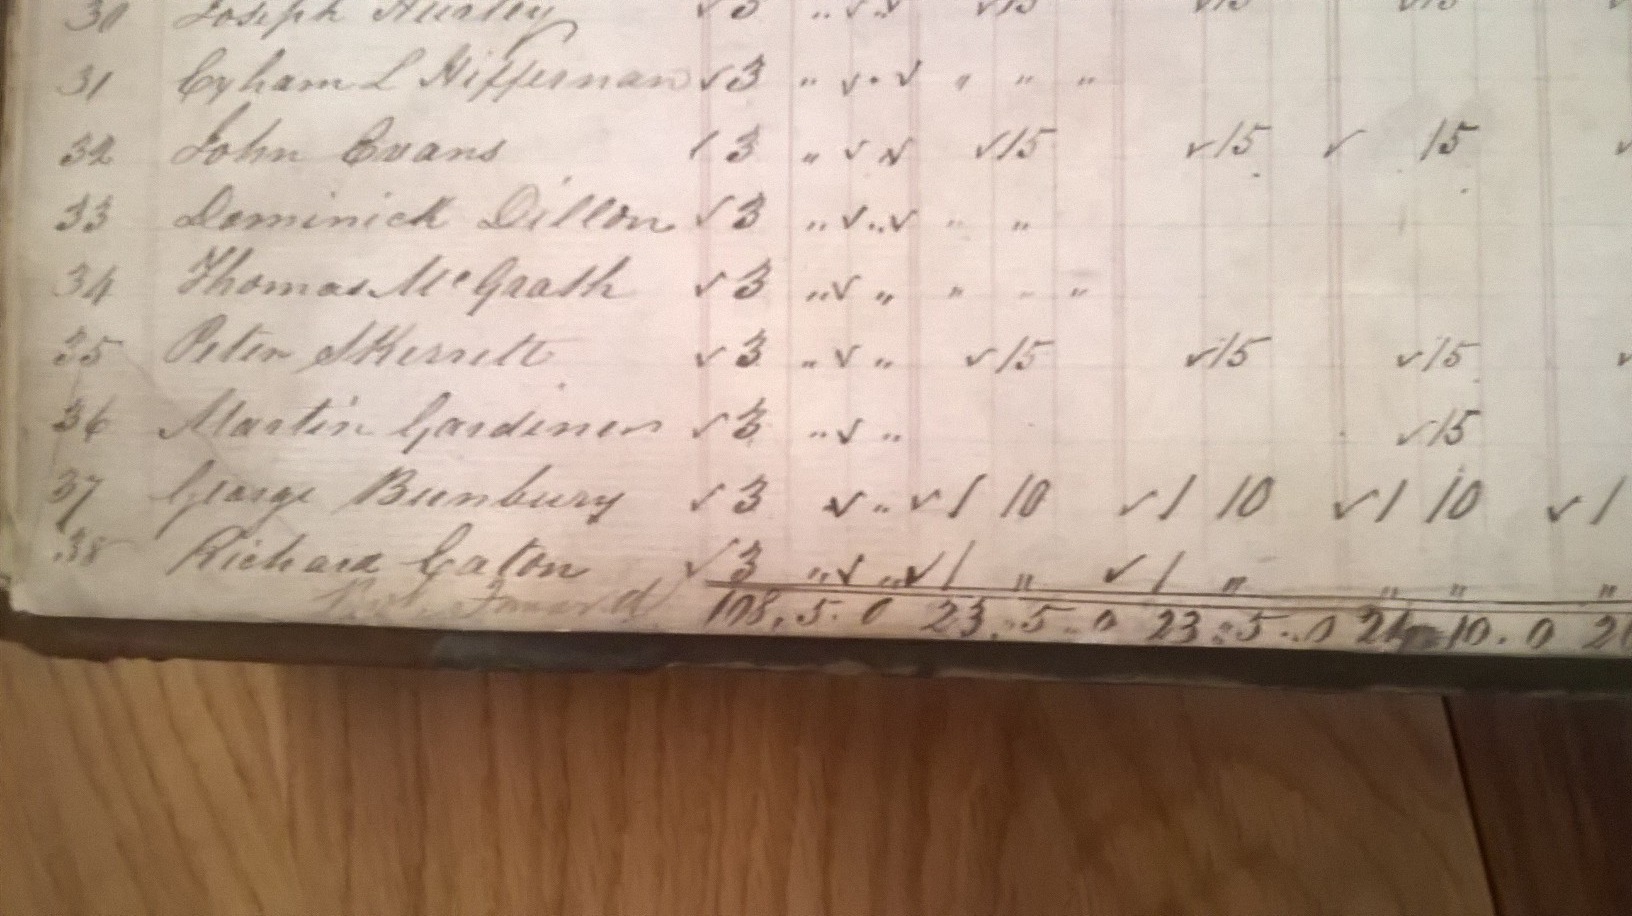 30 Joseph Hurley √3 „ √ „ √ √15 √15 √15
31 Cyham L Hiffernan √3 „ √ „ √ „ „ „
32 John Evans √3 „ √ √ √15 √15 √ 15 √
33 Dominick Dillon √3 „ √ „ √ „ „
34 Thomas McGrath √3 „ √ „ „ „ „
35 Peter Skerrett √3 „ √ „ √15 √15 √15 √
36 Martin Gardiner √3 „ √ „ √15
37 George Bunbury √3 √ „ √1 10 √1 10 √1 10 √1
38 Richard Eaton √3 „ √ „ √1 „ √1 „ „ „ „
108. 5. 0 23. 5. 0 23. 5. 0 10. 0